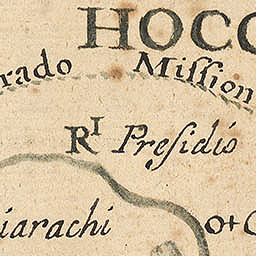 HOCC
rado Miſsion
Rᴵ Preſidio
iarachi o+C